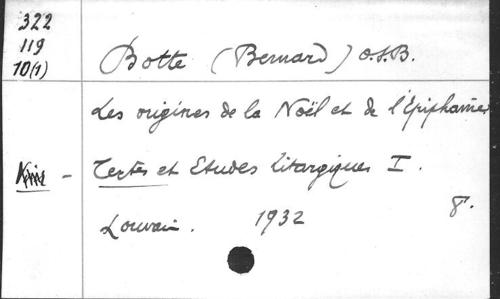 322
119
10(1)
Botte (Bernard) O.S.B.
Les origines de la Noël et de l'Epiphanie
Textes et Etudes liturgiques I.
Louvain. 1932 8°.